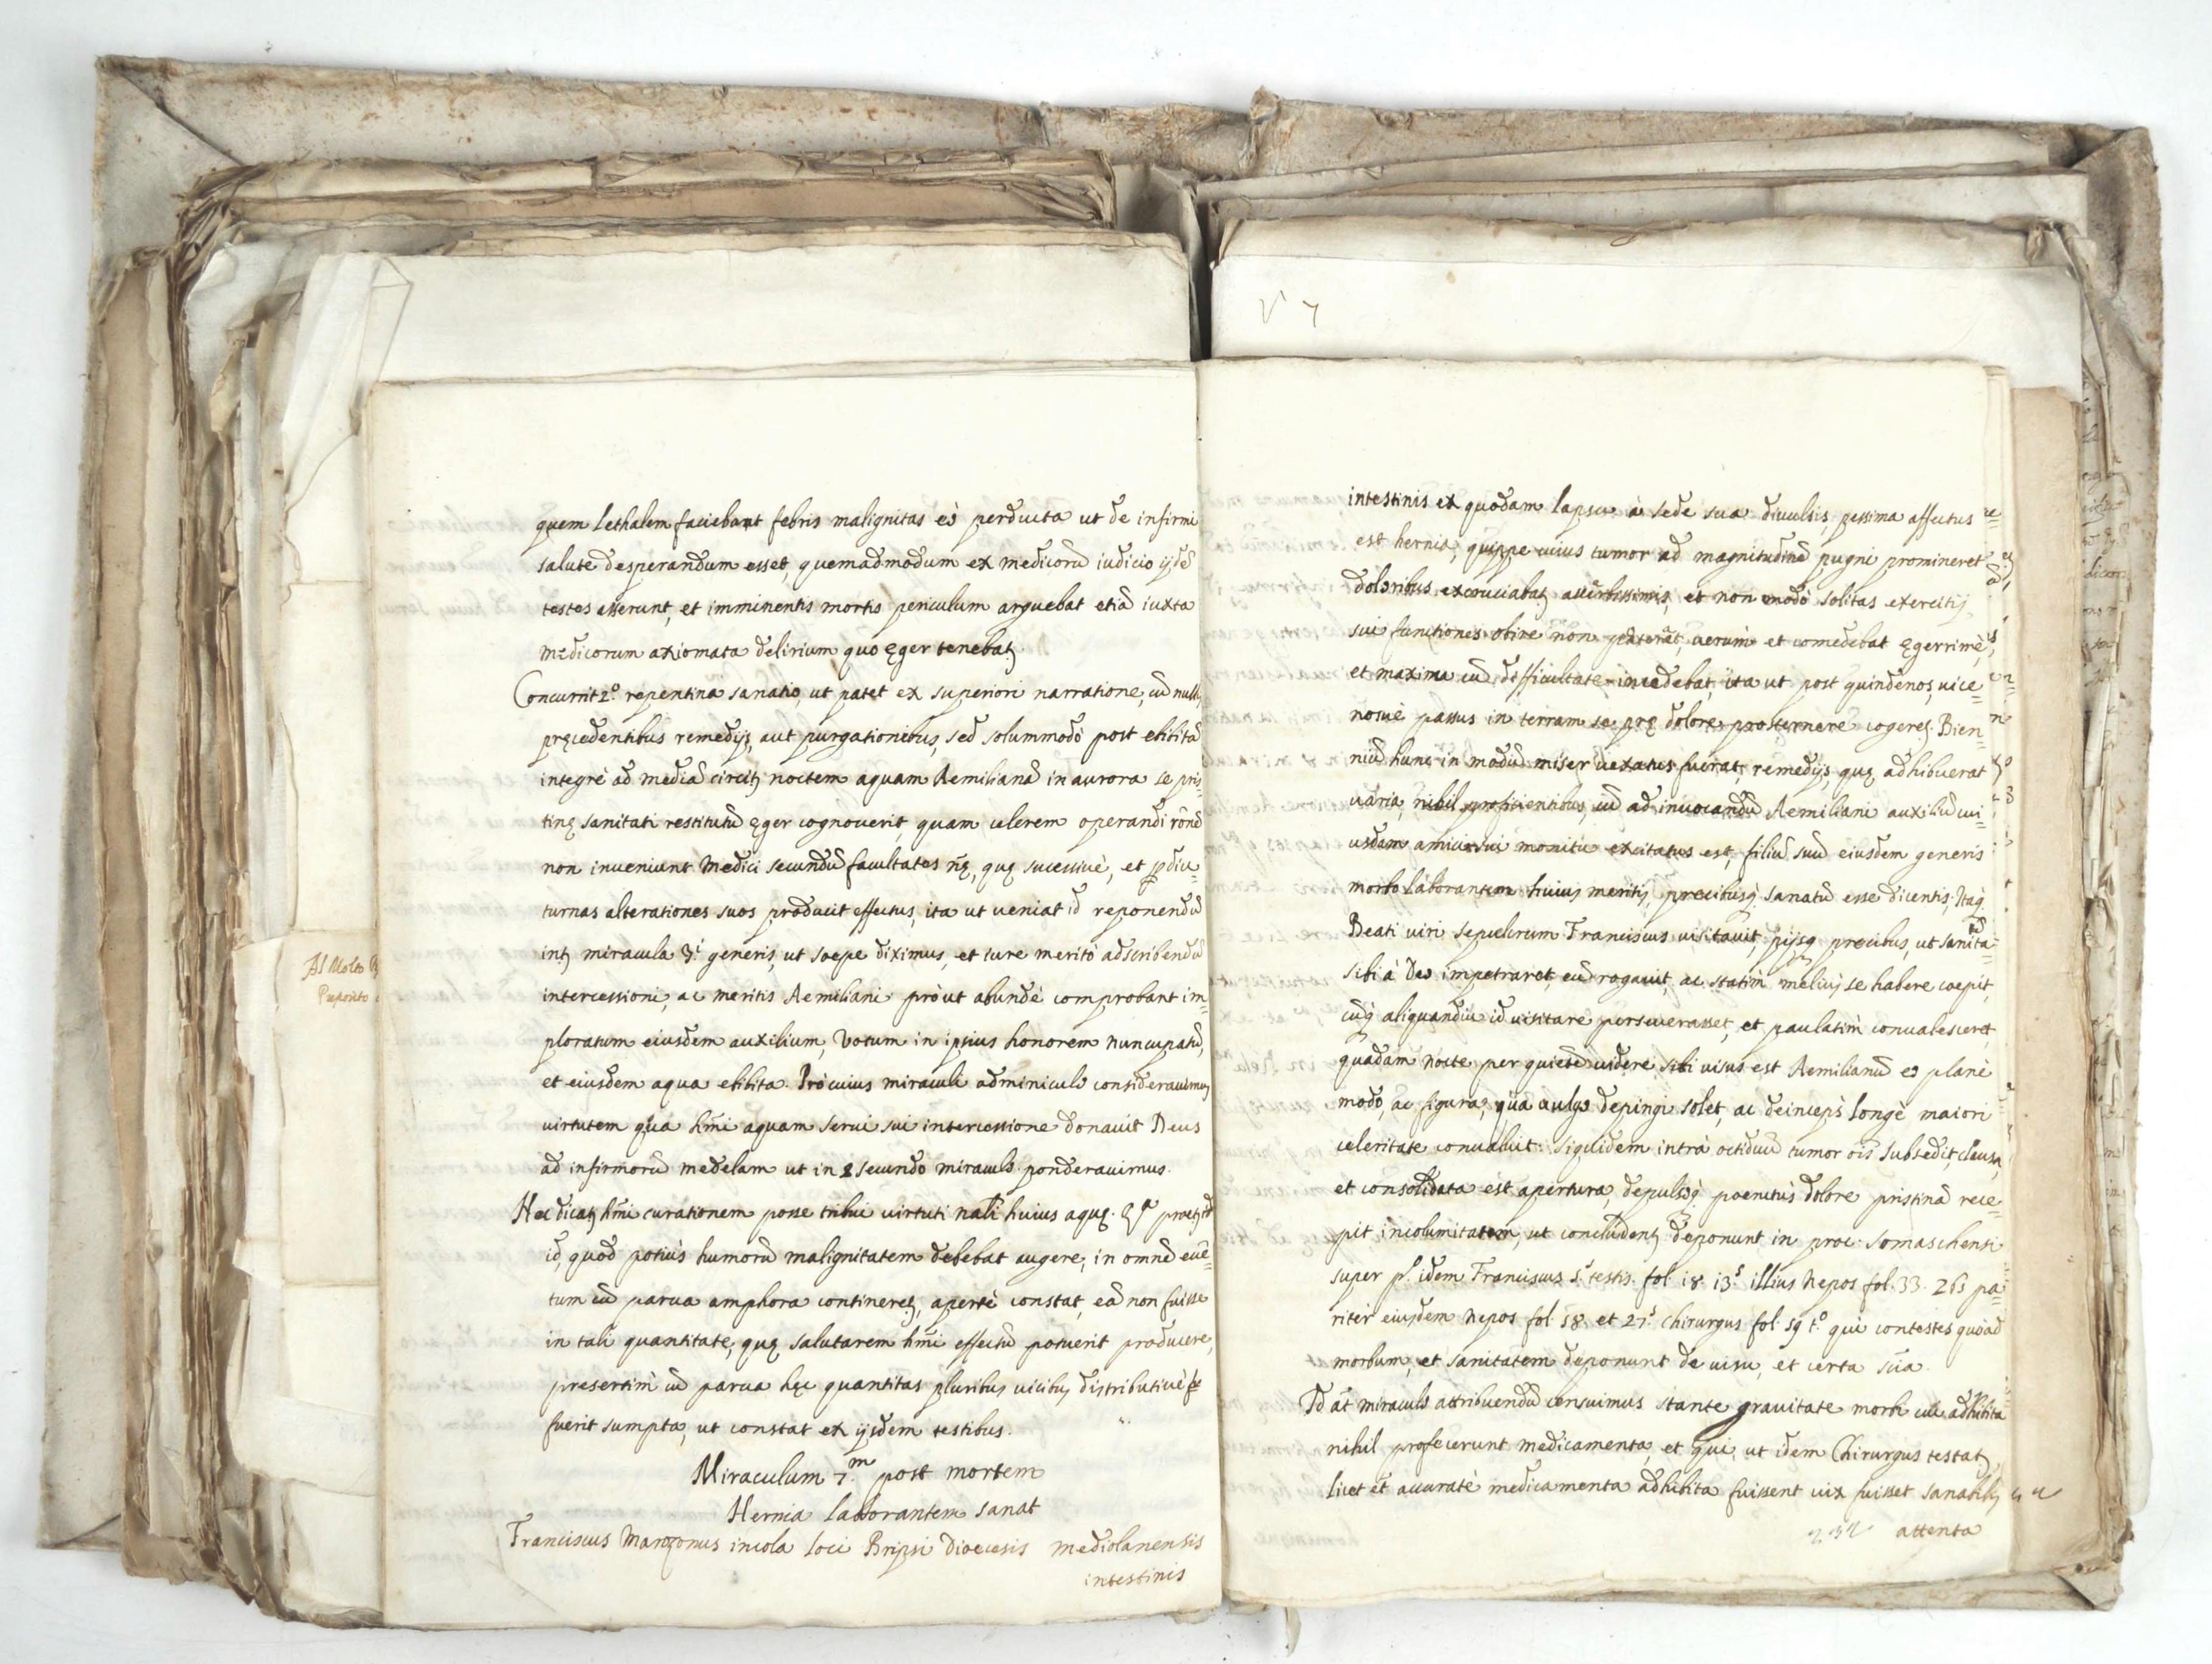 quem lethalem faciebant febris malignitas eò perducta ut de infirmi
salute desperandum esset, quemadmodum ex medicorū iudicio ijdē
testes asserunt, et imminentis mortis periculum arguebat etiā iuxta
medicorum axiomata delirium quo ęger tenebatꝫ.
Concurrit 2.º repentina sanatio, ut patet ex superiori narratione, cū nullis
pręcedentibus remedijs, aut purgationibus, sed solummodò post ebibitā
integrè ad mediā circitꝫ noctem aquam Aemilianā in aurora se pris=
tinę sanitati restitutū ęger cognouerit, quam celerem operandi rōnē
non inueniunt Medici secundū facultates nę, quę sucessiuè, et ꝑ diu=
turnas alterationes suos producit effectus, ita ut ueniat id reponendū
intꝫ miracula 3.i generis, ut soepe diximus, et iure meritò adscribendū
intercessioni, ac meritis Aemiliani pròut abundè comprobant im=
ploratum eiusdem auxilium, Votum in ipsius honorem nuncupatū,
et eiusdem aqua ebibita. Pro cuius miraculi adminiculo considerauimus
uirtutem qua hm̄i aquam serui sui intercessione donauit Deus
ad infirmorū medelam ut in 2 secundo miraculo ponderauimus.
Nec dicatꝫ hm̄i curationem posse tribui uirtuti nāli huius aquę. Qa
id, quod potiùs humorū malignitatem debebat augere, in omnē euē=
tum cū parua amphora contineretꝫ, apertè constat, eā non fuisse
in tali quantitate, quę salutarem hm̄i effectū potuerit producere,
presertìm cū parua hęc quantitas pluribus uicibus distributiuè
fuerit sumpta, ut constat ex ijsdem testibus.
Miraculum 7.m post mortem
Hernia laborantem sanat
Franciscus Manzonus incola loci Bripsi Dioecesis mediolanensis
intestinis
Al Molto
Preposito
V 7
intestinis ex quodam lapsu à sede sua diuulsis, pessima affectus
est hernia, quippe cuius tumor ad magnitudinē pugni promineret
doloribus excruciabatꝫ acerbissimis, et non modò solitas exercitij
sui functiones obire non poterat, uerùm et comedebat ęgerrimè,
et maxima cū difficultate incedebat, ita ut post quindenos, uice=
nosuè passus in terram se prę dolore prosternere cogeretꝫ. Bien=
niū hunc in modū miser uexatus fuerat, remedijs, quę adhibuerat
uaria, nihil proficientibus, cū ad inuocandū Aemiliani auxiliū cui=
usdam amici sui monitu excitatus est, filiū suū eiusdem generis
morbo laborantem huius meritis, precibusq; sanatū esse dicentis; Itaq;
Beati uiri sepulcrum Franciscus uisitauit, pijsq; precibus, ut sanitatē
sibi à Deo impetraret, eū rogauit, ac statìm meliùs se habere coepit,
cūq; aliquandiu id uisitare perseuerasset, et paulatìm conualesceret,
quadam nocte per quietē uidere sibi uisus est Aemilianū eo planè
modo, ac figura, qua a uulgo depingi solet, ac deincèps longè maiori
celeritate conualuit: siquidem intrà octiduū tumor ois subsedit, clausa,
et consolidata est apertura, depulsoq; poenitùs dolore pristinā rece=
pit incolumitatem, ut concludentꝫ deponunt in proc. Somaschensi
super pº. idem Franciscus s.s testis fol. 18. 13.s illius Nepos fol. 33. 26s pa=
ritèr eiusdem Nepos fol. 58. et 27.s Chirurgus fol. 59 t.º qui contestes quoad
morbum, et sanitatem deponunt de uisu, et certa scīa.
Id āt miraculo attribuendū censuimus stante grauitate morbi cui adhibita
nihil profecerunt medicamenta, et qui, ut idem Chirurgus testatꝫ,
licet et accuratè medicamenta adhibita fuissent uix fuisset sanabilis
232 attenta